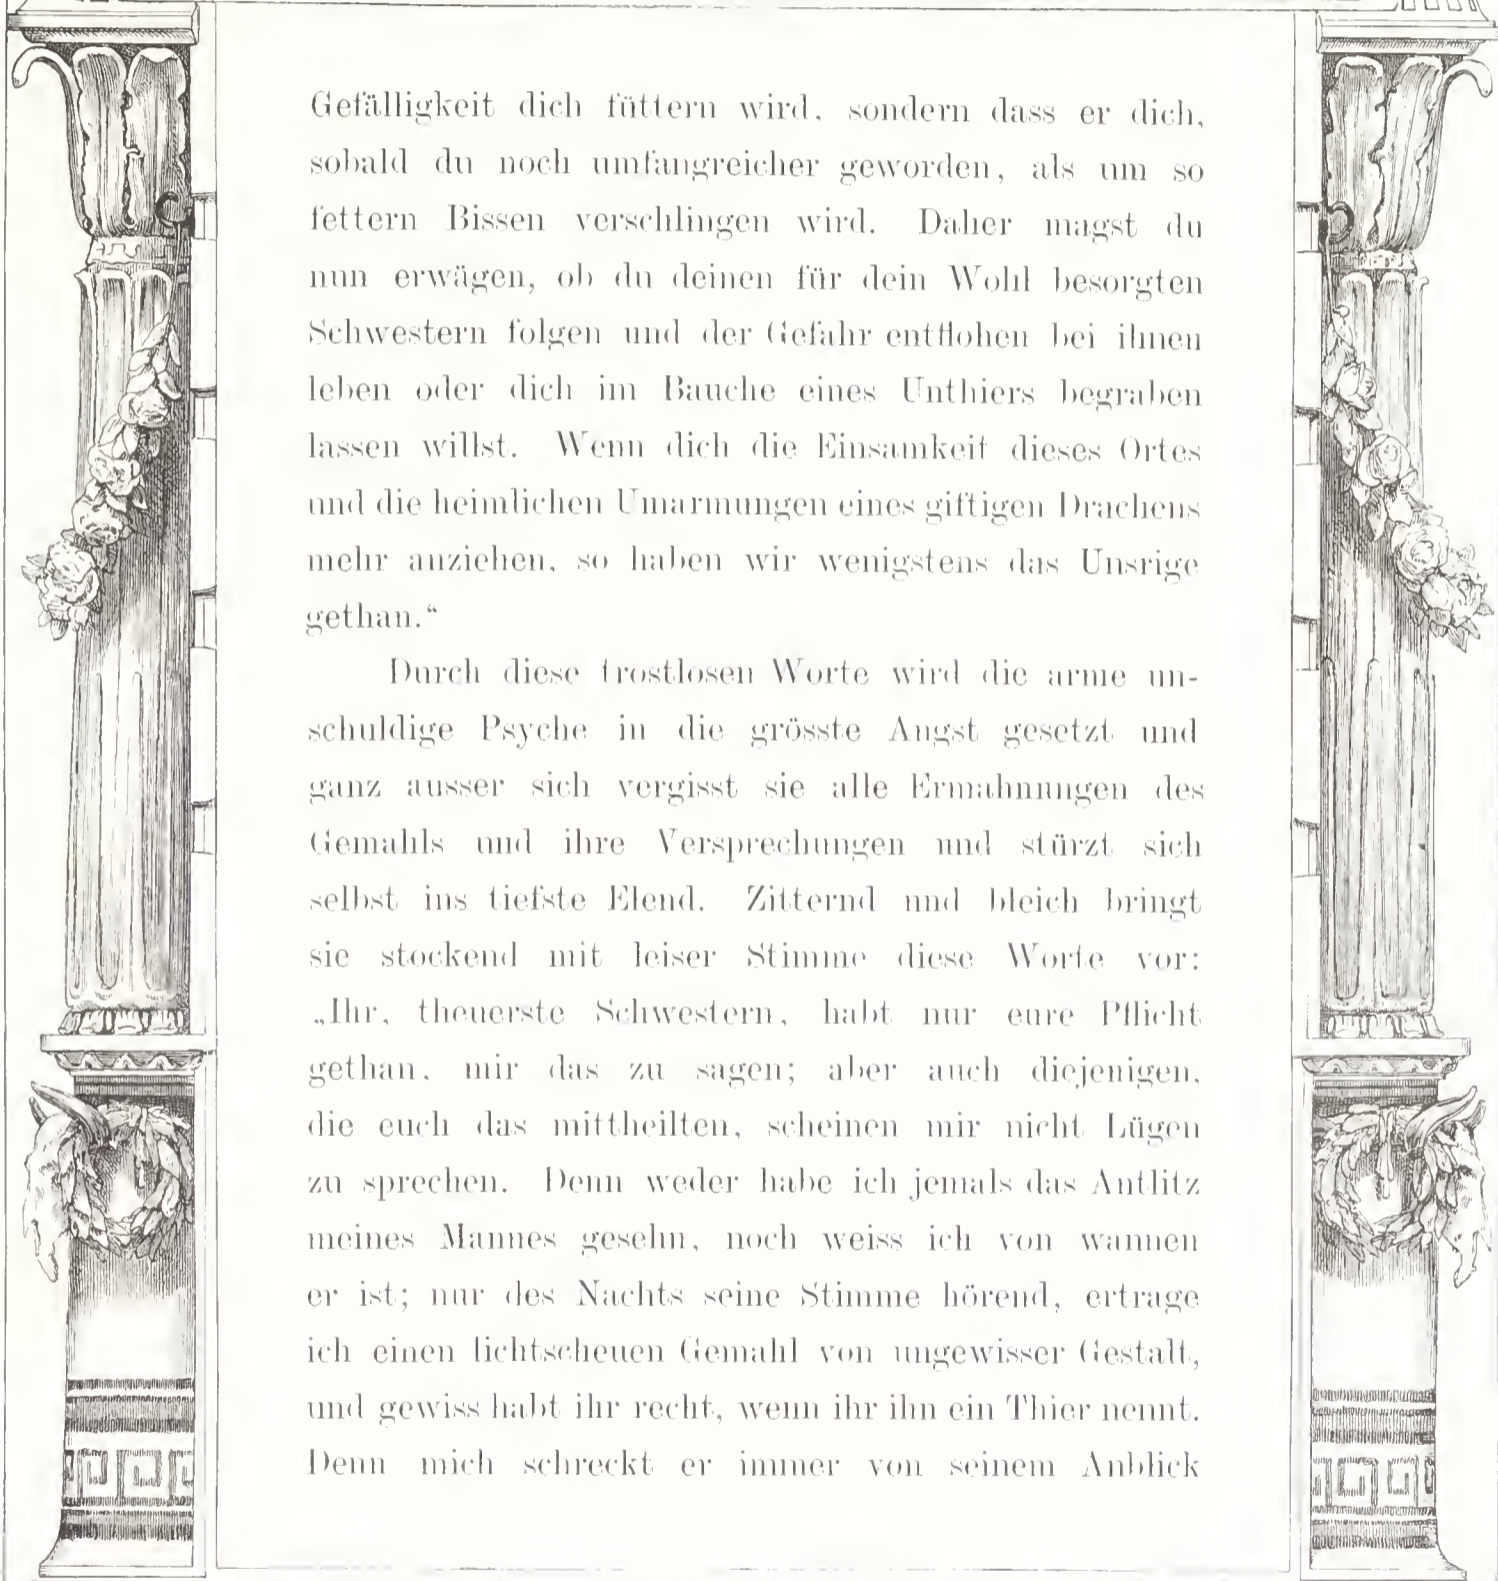 Gefälligkeit dich füttern wird, sondern dass er dich,
sobald du noch umfangreicher geworden, als um so
fettern Bissen verschlingen wird. Daher magst du
nun erwägen, ob du deinen für dein Wohl besorgten
Schwestern folgen und der Gefahr entflohen bei ihnen
leben oder dich im Bauche eines Unthiers begraben
lassen willst. Wenn dich die Einsamkeit dieses Ortes
und die heimlichen Umarmungen eines giftigen Drachens
mehr anziehen, so haben wir wenigstens das Unsrige
gethan.“
Durch diese trostlosen Worte wird die arme un-
schuldige Psyche in die grösste Angst gesetzt und
ganz ausser sich vergisst sie alle Ermahnungen des
Gemahls und ihre Versprechungen und stürzt sich
selbst ins tiefste Elend. Zitternd und bleich bringt
sie stockend mit leiser Stimme diese Worte vor:
„Ihr, theuerste Schwestern, habt nur eure Pflicht
gethan, mir das zu sagen; aber auch diejenigen,
die euch das mittheilten, scheinen mir nicht Lügen
zu sprechen. Denn weder habe ich jemals das Antlitz
meines Mannes gesehn, noch weiss ich von wannen
er ist; nur des Nachts seine Stimme hörend, ertrage
ich einen lichtscheuen Gemahl von ungewisser Gestalt,
und gewiss habt ihr recht, wenn ihr ihn ein Thier nennt.
Denn mich schreckt er immer von seinem Anblick